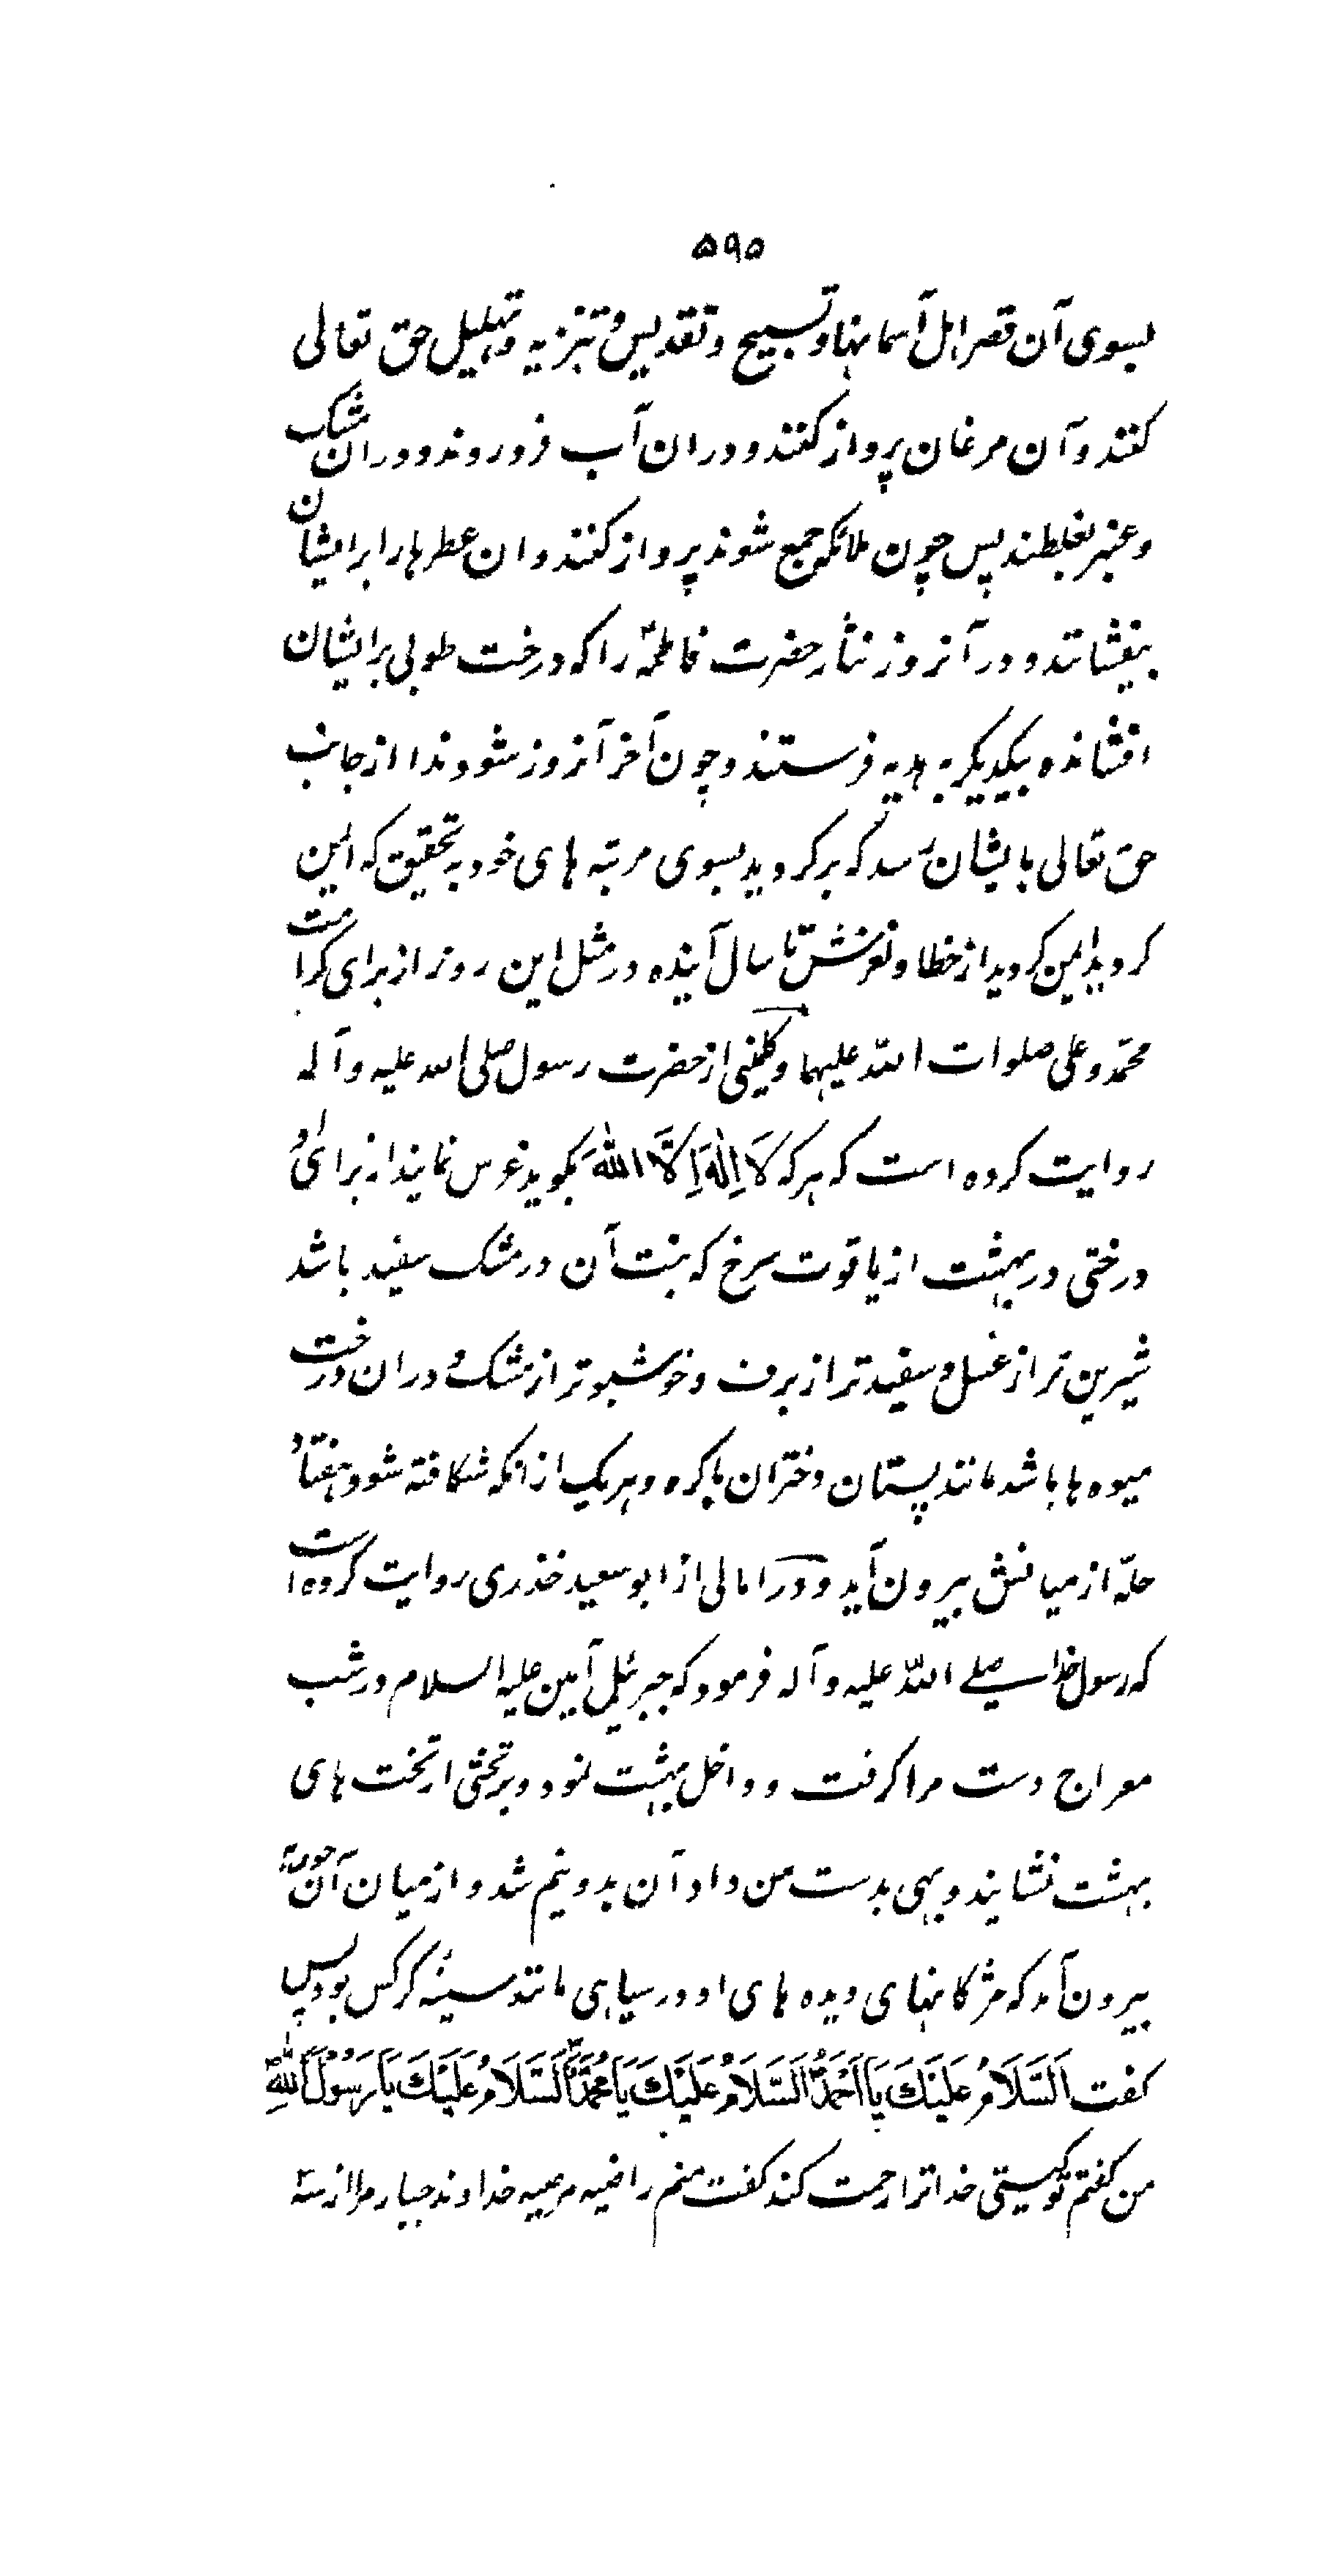 ۵۹۵
بسوی آن قصر اهل آسمانها و تسبیح و تقدیس و تنزیه و تهلیل حق تعالی
کنند و آن مرغان پرواز کنند و دران آب فرو روند و دران مشک
و عنبر بغلطند پس چون ملائکه جمع شوند پرواز کنند و ان عطرها را بر ایشان
بیفشانند و در آنروز نثار حضرت فاطمهٔ را که درخت طوبی بر ایشان
افشانده بیکدیگر به هدیه فرستند و چون آخر آنروز شود ندا از جانب
حق تعالی بایشان رسد که برگردید بسوی مرتبه های خود به تحقیق که ایمن
گردید ایمن گردید از خطا و لغزش تا سال آینده در مثل این روز از برای کرامت
محمّد و علی صلوات اللّه علیهما و کلینی از حضرت رسول صلی الله علیه و آله
روایت کرده است که هر که لَا اِلٰهَ اِلَّا اللّٰهَ بگوید غرس نمایند از برای او
درختی در بهشت از یاقوت سرخ که بنت آن در مشک سفید باشد
شیرین تر از عسل و سفیدتر از برف و خوشبوتر از مشک و دران درخت
میوه ها باشد مانند پستان دختران باکره و هر یک ازانکه شکافته شود هفتاد
حلّه از میانش بیرون آید و در امالی از ابو سعید خذری روایت کرده است
که رسول خدا صلے اللّه علیه و آله فرمود که جبرئیل آمین علیه السلام در شب
معراج دست مرا گرفت و داخل بهشت نمود و بر تختی از تخت های
بهشت نشایند و بهی بدست من داد آن بدو نیم شد و از میان آن حوریه
بیرون آمد که مژگانهای دیده های او در سیاهی مانند سینهٔ کرکس بود پس
گفت اَلسَّلَامُ عَلَیْکَ یَا اَحْمَدُ اَلسَّلَامُ عَلَیْکَ یَا مُحَمَّدُ اَلسَّلَامُ عَلَیْکَ یَا رَسُوْلَ اللّٰهِ
من گفتم تو کیستی خدا ترا رحمت کند گفت منم راضیه مرضیه خداوند جبار مرا از سه